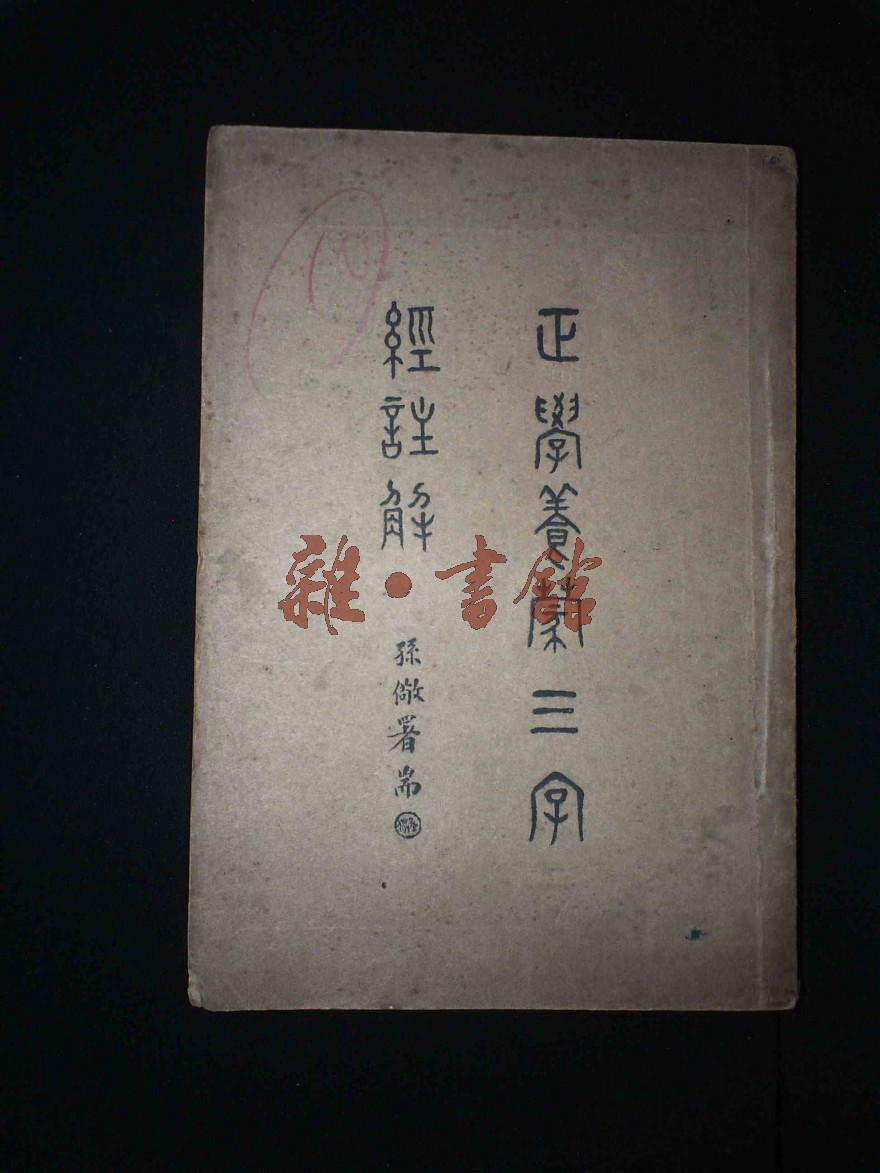 正學養蒙三字
經註解
孫儆署耑
雜·書館